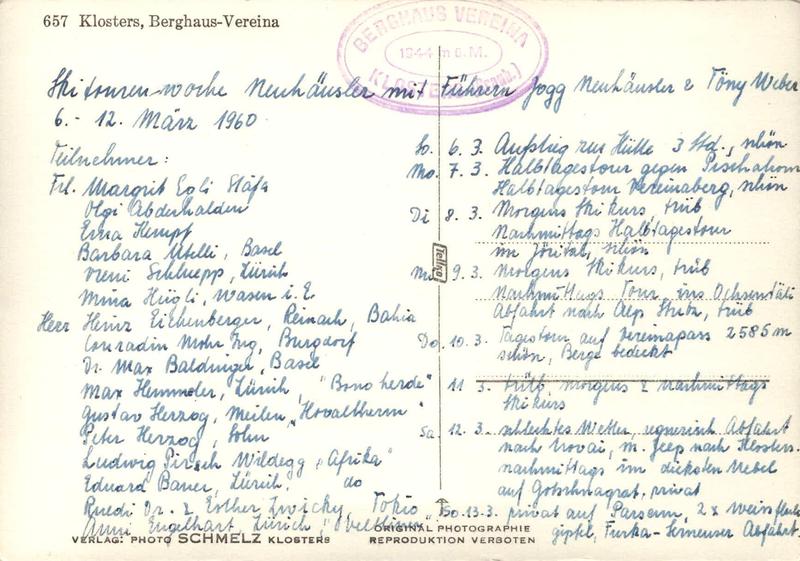 657 Klosters, Berghaus-Vereina
BERGHAUS VEREINA
1944 m ü. M.
KLOSTERS (Graub.)
Skitourenwoche Neuhäusler mit Führern Jogg Neuhäusler & Töny Weber
6. - 12. März 1960
Teilnehmer:
Frl. Margrit Egli Stäfa
Olgi Abderhalden
Erna Kempf
Barbara Utelli, Basel
Vreni Schluepp, Zürich
Mina Hügli, Wasen i. E.
Herr Heinz Eichenberger, Reinach, Bahia
Conradin Mohr Ing, Burgdorf
Dr. Max Baldinger, Basel
Max Hemmeler, Zürich, "Bono herde"
Gustav Herzog, Meilen "Hovaltherm"
Peter Herzog, Sohn
Ludwig Pirsch Wildegg "Afrika"
Eduard Bauer, Zürich. do
Ruedi Dr. & Esther Zwicky, Tokio
Anni Engelhart, Zürich
So. 6. 3. Aufstieg zur Hütte 3 Std., schön
Mo. 7. 3. Halbtagestour gegen Pischahorn
Halbtagestour Vereinaberg, schön
Di 8. 3. Morgens Skikurs, trüb
Nachmittags Halbtagestour
im Jörital, schön
Mi. 9. 3. Morgens Skikurs, trüb
Nachmittags Tour ins Ochsentäli
Abfahrt nach Alp Stutz, trüb
Do. 10. 3. Tagestour auf Vereinapass 2585 m
schön, Berge bedeckt
11 3. trüb, morgens & nachmittags
Skikurs
Sa. 12. 3. schlechtes Wetter, Abfahrt
nach Novai, m. Jeep nach Klosters.
nachmittags im dicksten Nebel
auf Gotschnagrat, privat
So. 13. 3. privat auf Parsenn, 2 x Weissfluh
gipfel, Furka-Serneuser Abfahrt.
Tellko
VERLAG: PHOTO SCHMELZ KLOSTERS
ORIGINAL PHOTOGRAPHIE
REPRODUKTION VERBOTEN